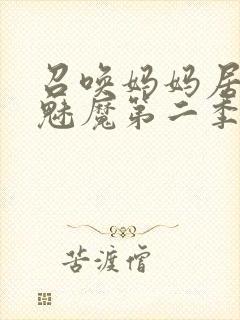 召唤妈妈居
魅魔第二季
苦渡僧